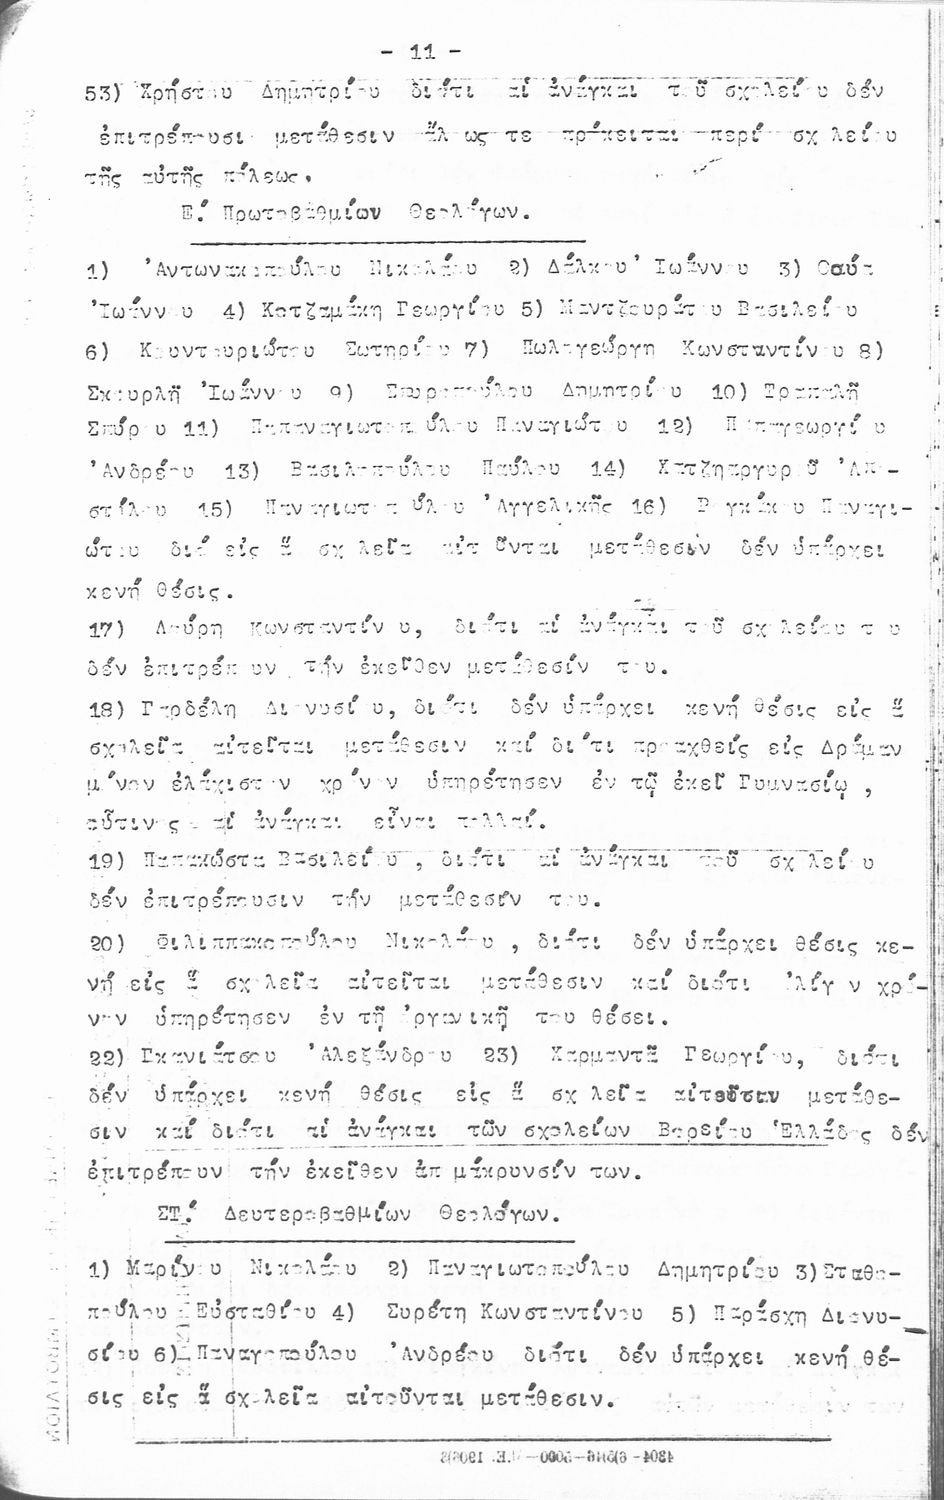 - 11 -
53) Χρήστου Δημητρίου διότι αἱ ἀνάγκαι τοῦ σχολείου δέν
ἐπιτρέπουσι μετάθεσιν ἄλλως τε πρόκειται περί σχολείου
τῆς αὐτῆς πόλεως.
Ε.' Πρωτοβαθμίων Θεολόγων.
1) 'Αντωνακοπούλου Νικολάου 2) Δάλκου 'Ιωάννου 3)
'Ιωάννου 4) Κοτζαμάκη Γεωργίου 5) Μαντζουράτου Βασιλείου
6) Κουντουριώτου Σωτηρίου 7) Πωλογεώργη Κωνσταντίνου 8)
Σκουρλῆ 'Ιωάννου 9) Σπυροπούλου Δημητρίου 10) Τραπαλῆ
Σπύρου 11) Παπαναγιωτοπούλου Παναγιώτου 12) Παπαγεωργίου
'Ανδρέου 13) Βασιλοπούλου Παύλου 14) Χατζηαργυροῦ 'Απο-
στόλου 15) Παναγιωτοπούλου 'Αγγελικῆς 16) Παναγι-
ώτου διό εἰς ἅ σχολεῖα αἰτοῦνται μετάθεσιν δέν ὑπάρχει
κενή θέσις.
17) Λαύρη Κωνσταντίνου, διότι αἱ ἀνάγκαι τοῦ σχολείου του
δέν ἐπιτρέπουν τήν ἐκεῖθεν μετάθεσίν του.
18) Γαρδέλη Διονυσίου, διότι δέν ὑπάρχει κενή θέσις εἰς ἅ
σχολεῖα αἰτεῖται μετάθεσιν καί διότι προαχθείς εἰς Δράμαν
μόνον ἐλάχιστον χρόνον ὑπηρέτησεν ἐν τῷ ἐκεῖ Γυμνασίῳ ,
οὗτινος αἱ ἀνάγκαι εἶναι πολλαί.
19) Παπακώστα Βασιλείου , διότι αἱ ἀνάγκαι τοῦ σχολείου
δέν ἐπιτρέπουσιν τήν μετάθεσίν του.
20) Φιλιππακοπούλου Νικολάου , διότι δέν ὑπάρχει θέσις κε-
νή εἰς ἅ σχολεῖα αἰτεῖται μετάθεσιν καί διότι ὀλίγον χρό-
νον ὑπηρέτησεν ἐν τῇ ὀργανικῇ του θέσει.
22) Γκανιάτσου 'Αλεξάνδρου 23) Χαρμαντᾶ Γεωργίου, διότι
δέν ὑπάρχει κενή θέσις εἰς ἅ σχολεῖα αἰτοῦσιν μετάθε-
σιν καί διότι αἱ ἀνάγκαι τῶν σχολείων Βορείου Ἑλλάδος δέν
ἐπιτρέπουν τήν ἐκεῖθεν ἀπομάκρυνσίν των.
ΣΤ.' Δευτεροβαθμίων Θεολόγων.
1) Μαρίνου Νικολάου 2) Παναγιωτοπούλου Δημητρίου 3)Σταθο-
πούλου Εὐσταθίου 4) Συρέτη Κωνσταντίνου 5) Παράσχη Διονυ-
σίου 6) Παναγοπούλου 'Ανδρέου διότι δέν ὑπάρχει κενή θέ-
σις εἰς ἅ σχολεῖα αἰτοῦνται μετάθεσιν.